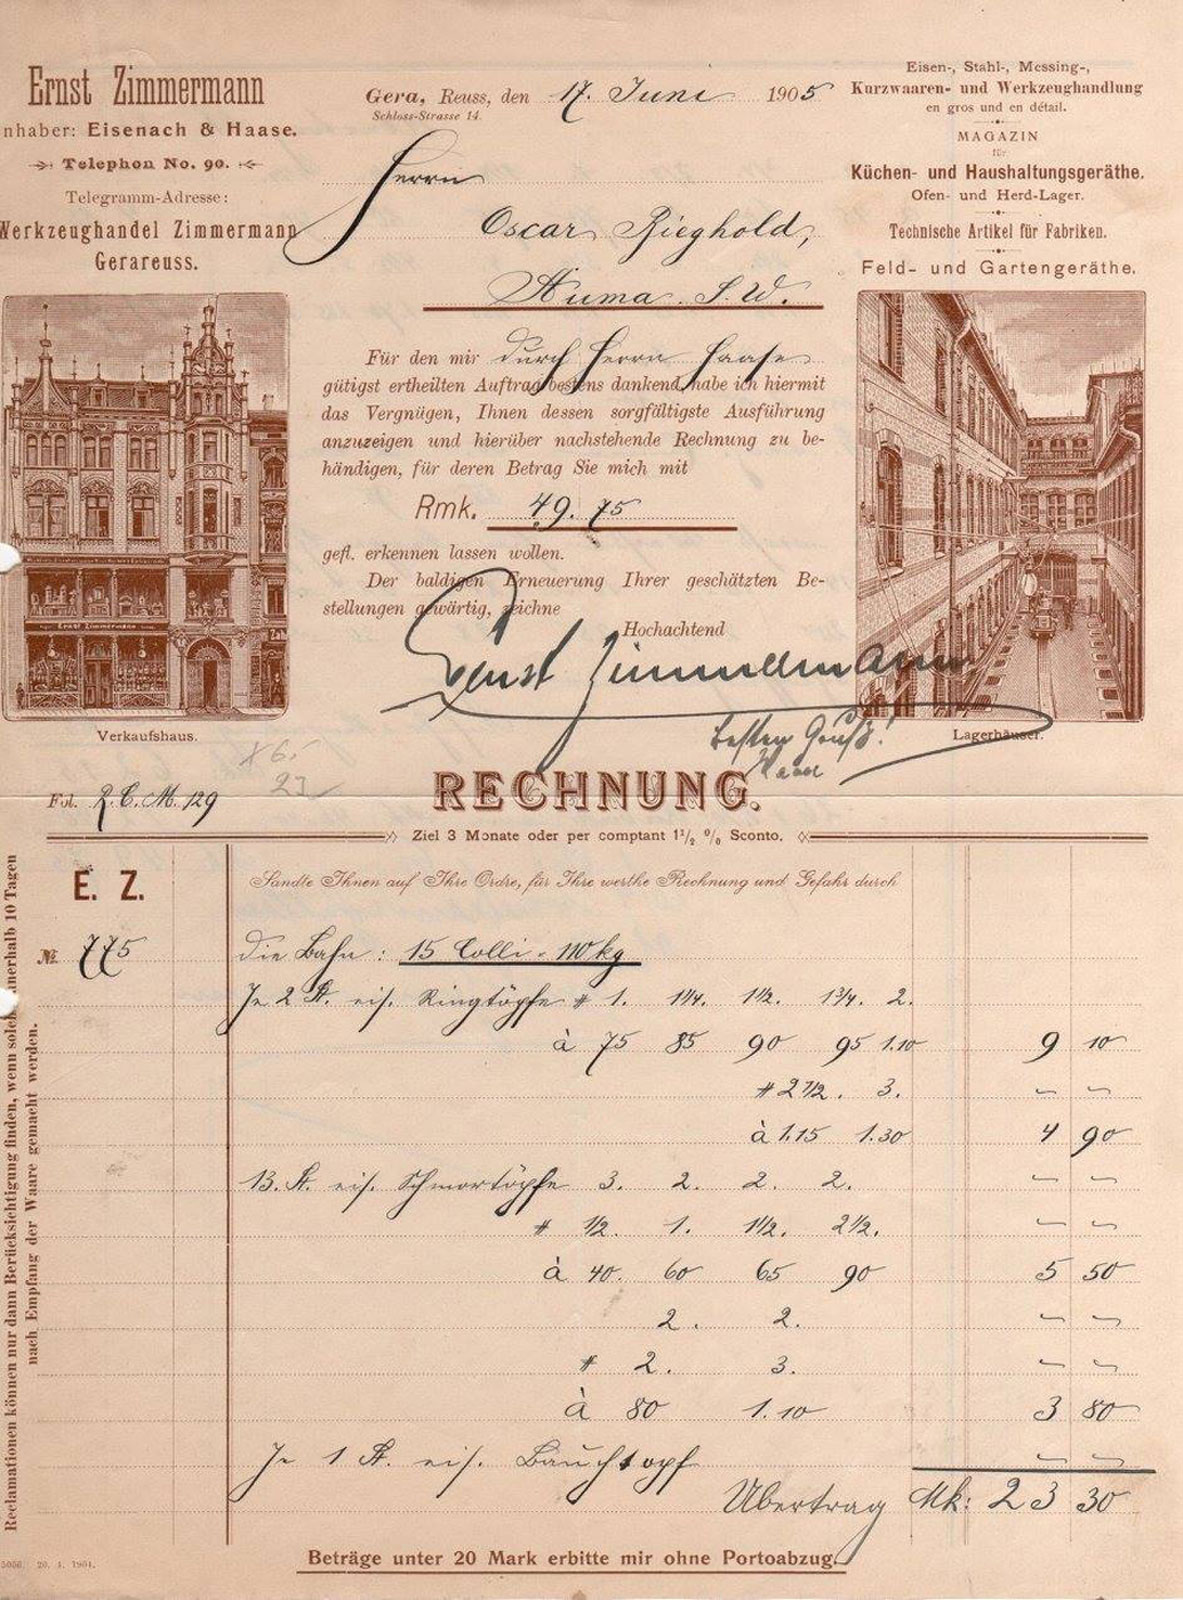 Ernst Zimmermann
nhaber: Eisenach & Haase.
Telephon No. 90.
Telegramm-Adresse:
Werkzeughandel Zimmermann
Gerareuss.
Gera, Reuss, den 17. Juni 1905
Schloss-Strasse 14.
Eisen-, Stahl-, Messing-,
Kurzwaaren- und Werkzeughandlung
en gros und en détail.
MAGAZIN
für
Küchen- und Haushaltungsgeräthe.
Ofen- und Herd-Lager.
Technische Artikel für Fabriken.
Feld- und Gartengeräthe.
Herrn
Oscar Zieghold,
Auma S.W.
Für den mir durch Herrn Haase
gütigst ertheilten Auftrag bestens dankend, habe ich hiermit
das Vergnügen, Ihnen dessen sorgfältigste Ausführung
anzuzeigen und hierüber nachstehende Rechnung zu be-
händigen, für deren Betrag Sie mich mit
Rmk. 49.75
gefl. erkennen lassen wollen.
Der baldigen Erneuerung Ihrer geschätzten Be-
stellungen gewärtig, zeichne
Hochachtend
Ernst Zimmermann
besten Gruß!
Haase
Ernst Zimmermann
Verkaufshaus.
Lagerhäuser.
Fol. R.C.M. 129
RECHNUNG.
Ziel 3 Monate oder per comptant 1 1/2 % Sconto.
E. Z.
Sandte Ihnen auf Ihre Ordre, für Ihre werthe Rechnung und Gefahr durch
№ 775 die Bahn: 15 Colli = 110 kg
Je 2 St. eis. Ringtöpfe # 1. 1 1/4. 1 1/2. 1 3/4. 2.
à 75 85 90 95 1.10 9 10
# 2 1/2. 3.
à 1.15 1.30 4 90
13. St. eis. Schmortöpfe 3. 2. 2. 2.
# 1/2. 1. 1 1/2. 2 1/2.
à 40. 60 65 90 5 50
2. 2.
# 2. 3.
à 80 1.10 3 80
Je 1 St. eis. Bauchtopf
Übertrag Mk: 23 30
Beträge unter 20 Mark erbitte mir ohne Portoabzug.
Reclamationen können nur dann Berücksichtigung finden, wenn solche innerhalb 10 Tagen
nach Empfang der Waare gemacht werden.